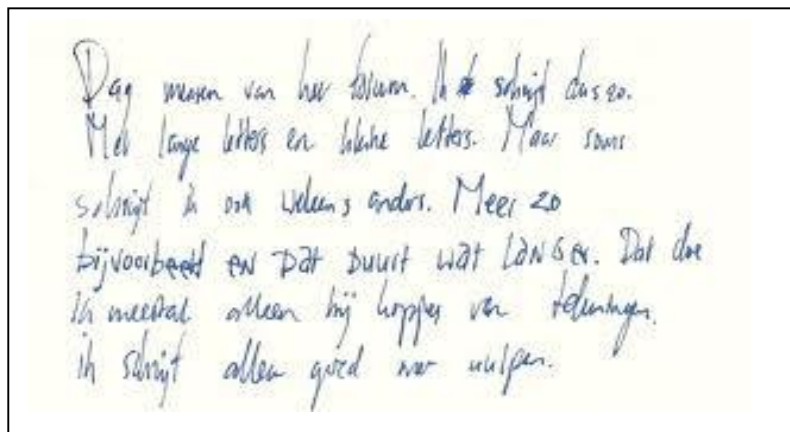 Dag mensen van het forum. Ik schrijf dus zo.
Met lange letters en kleine letters. Maar soms
schrijf ik ook weleens anders. Meer zo
bijvoorbeeld en DAT DUURT WAT LANGER. Dat doe
ik meestal alleen bij kopjes van tekeningen.
ik schrijf alleen goed met vulpen.